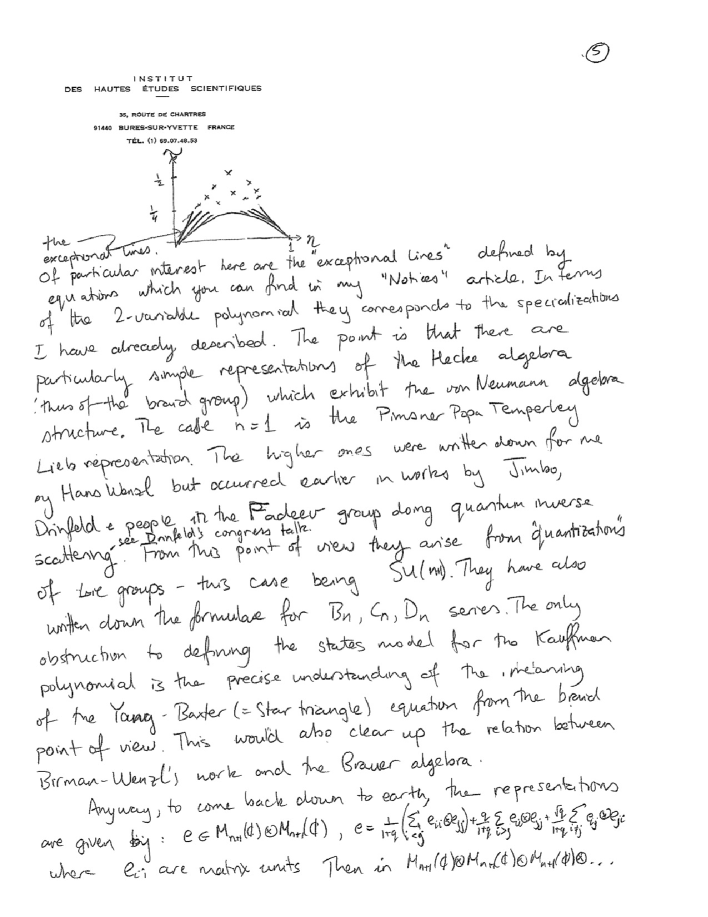 5
INSTITUT
DES HAUTES ÉTUDES SCIENTIFIQUES
35, ROUTE DE CHARTRES
91440 BURES-SUR-YVETTE FRANCE
TÉL. (1) 69.07.48.53
1/2
1/4
1 η
the
exceptional lines.
Of particular interest here are the "exceptional lines" defined by
equations which you can find in my "Notices" article. In terms
of the 2-variable polynomial they corresponds to the specializations
I have already described. The point is that there are
particularly simple representations of the Hecke algebra
(thus of the braid group) which exhibit the von Neumann algebra
structure. The case n=1 is the Pimsner Popa Temperley
Lieb representation. The higher ones were written down for me
by Hans Wenzl but occurred earlier in works by Jimbo,
Drinfeld & people in the Fadeev group doing quantum inverse
see Drinfeld's congress talk.
scattering. From this point of view they arise from "quantizations"
of Lie groups - this case being SU(n+1). They have also
written down the formulae for Bn, Cn, Dn series. The only
obstruction to defining the states model for the Kauffman
polynomial is the precise understanding of the meaning
of the Yang-Baxter (= Star triangle) equation from the braid
point of view. This would also clear up the relation between
Birman-Wenzl's work and the Brauer algebra.
Anyway, to come back down to earth, the representations
are given by: e ∈ Mn+1(ℂ)⊗Mn+1(ℂ), e = 1/1+q (Σ i<j eii⊗ejj) + q/1+q Σ i>j eii⊗ejj + √q/1+q Σ i≠j eij⊗eji
where eij are matrix units Then in Mn+1(ℂ)⊗Mn+1(ℂ)⊗Mn+1(ℂ)⊗...